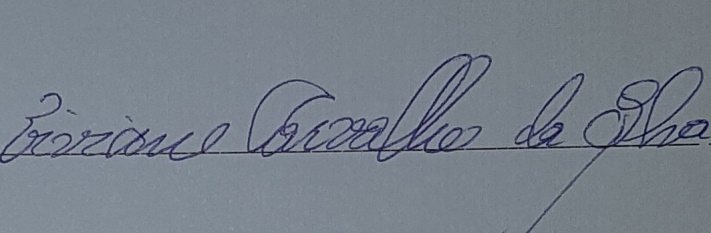 Viviane Carvalho da Silva